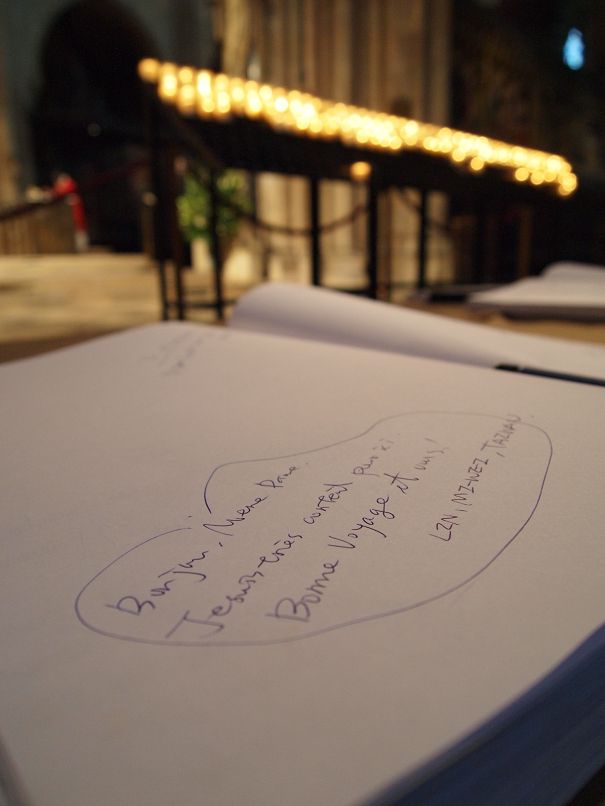 Bonjou, Mene Dame.
Je suis très content par ici.
Bonne Voyage et vous!
LIN, MI-WEI, TAIWAN.